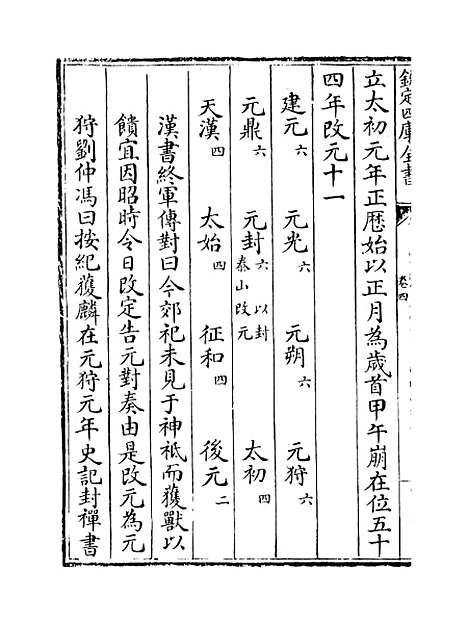 欽定四庫全書
卷四
立太初元年正歴始以正月為歲首甲午崩在位五十
四年改元十一
建元六 元光六 元朔六 元狩六
元鼎六 元封六以封泰山改元 太初四
天漢四 太始四 征和四 後元二
漢書終軍傳對曰今郊祀未見于神祗而獲獸以
饋宜因昭時令日改定告元對奏由是改元為元
狩劉仲馮曰按紀獲麟在元狩元年史記封禪書